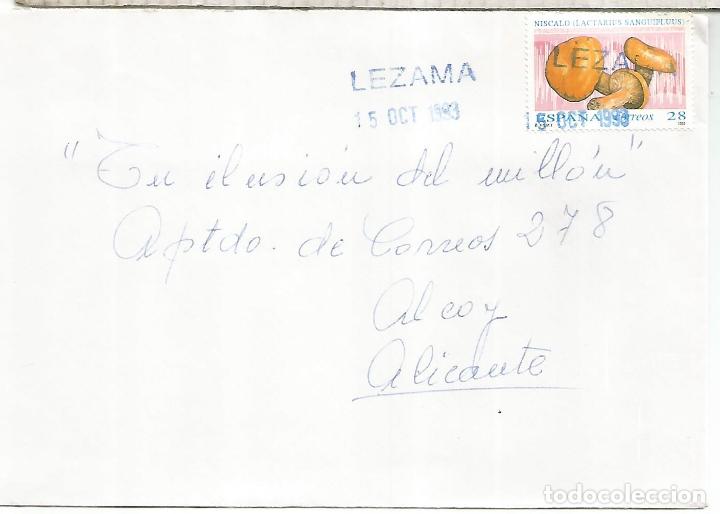 NISCALO (LACTARIUS SANGUIFLUUS)
LEZAMA
LEZA
15 OCT 1993
15 OCT 1993
ESPAÑA correos 28
"Tu ilusión del millón"
Aptdo. de Correos 278
Alcoy
Alicante
todocoleccion.net